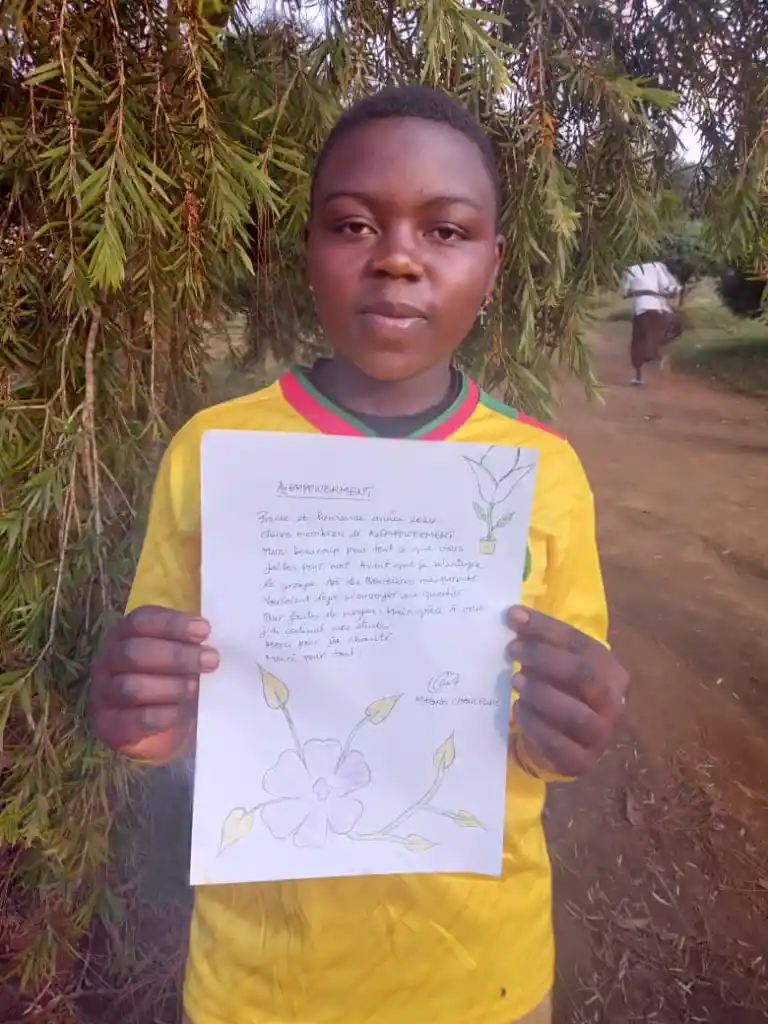 A2EMPOWERMENT
Bonne et heureuse année 2022
chères membres de A2EMPOWERMENT
Merci beaucoup pour tout ce que vous
faites pour moi. Avant que je n'intègre
le groupe des Boursières mes parents
voulaient déjà m'envoyer au quartier
Pour faute de moyen. Mais grâce à vous
j'ai continué mes études
Merci pour la charité
Merci pour tout.
MAGNE